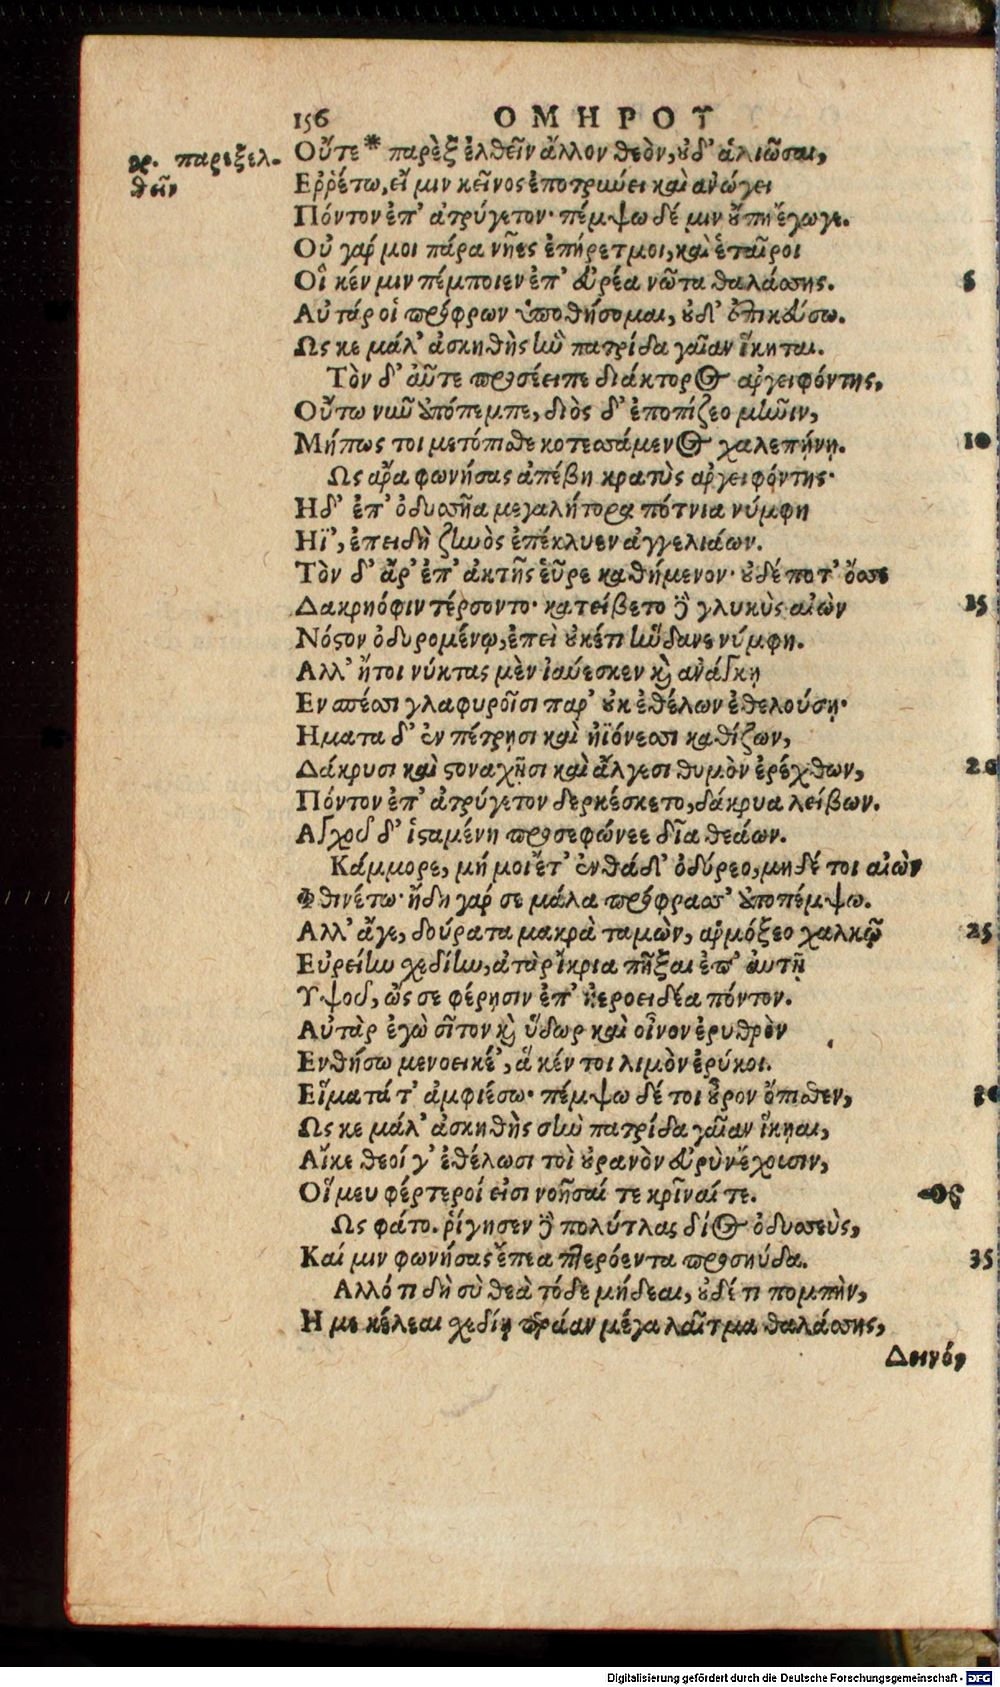 156 ΟΜΗΡΟΥ
γρ. παρεξελ-
θεῖν
Οὔτε* παρὲξ ἐλθεῖν ἄλλον θεὸν, ȣδ' ἁλιῶσαι,
Εῤῥέτω, εἴ μιν κεῖνος ἐποτρύνει καὶ ἀνώγει
Πόντον ἐπ' ἀτρύγετον· πέμψω δέ μιν ȣ̓́πη ἔγωγε.
Οὐ γάρ μοι πάρα νῆες ἐπήρετμοι, καὶ ἑταῖροι
Οἵ κέν μιν πέμποιεν ἐπ' εὐρέα νῶτα θαλάσσης. 5
Αὐτάρ οἱ πρόφρων ὑποθήσομαι, ȣδ' ἐπικεύσω.
Ως κε μάλ' ἀσκηθὴς ἣν πατρίδα γαῖαν ἵκηται.
Τὸν δ' αὖτε προσέειπε διάκτορος ἀργειφόντης,
Οὕτω νῦν ἀπόπεμπε, διὸς δ' ἐποπίζεο μῆνιν,
Μήπως τοι μετόπισθε κοτεσσάμενος χαλεπήνῃ. 10
Ως ἄρα φωνήσας ἀπέβη κρατὺς ἀργειφόντης·
Ηδ' ἐπ' ὀδυσσῆα μεγαλήτορα πότνια νύμφη
Ηϊ', ἐπειδὴ ζηνὸς ἐπέκλυεν ἀγγελιάων.
Τὸν δ' ἄρ' ἐπ' ἀκτῆς εὗρε καθήμενον· ȣδέ ποτ' ὄσσε
Δακρυόφιν τέρσοντο· κατείβετο δὲ γλυκὺς αἰὼν 15
Νόστον ὀδυρομένῳ, ἐπεὶ ȣκέτι ἥνδανε νύμφη.
Αλλ' ἤτοι νύκτας μὲν ἰαύεσκεν καὶ ἀνάγκῃ
Εν σπέσσι γλαφυροῖσι παρ' ȣκ ἐθέλων ἐθελούσῃ·
Ηματα δ' ἐν πέτρῃσι καὶ ἠϊόνεσσι καθίζων,
Δάκρυσι καὶ στοναχῇσι καὶ ἄλγεσι θυμὸν ἐρέχθων, 20
Πόντον ἐπ' ἀτρύγετον δερκέσκετο, δάκρυα λείβων.
Αγχοῦ δ' ἱσταμένη προσεφώνεε δῖα θεάων.
Κάμμορε, μή μοι ἔτ' ἐνθάδ' ὀδύρεο, μηδέ τοι αἰὼν
Φθινέτω· ἤδη γάρ σε μάλα πρόφρασσ' ἀποπέμψω.
Αλλ' ἄγε, δούρατα μακρὰ ταμὼν, ἁρμόζεο χαλκῷ 25
Εὐρεῖην σχεδίην, ἀτὰρ ἴκρια πῆξαι ἐπ' αὐτῇ
Υψοῦ, ὥς σε φέρῃσιν ἐπ' ἠεροειδέα πόντον.
Αὐτὰρ ἐγὼ σῖτον καὶ ὕδωρ καὶ οἶνον ἐρυθρὸν
Ενθήσω μενοεικέ', ἅ κέν τοι λιμὸν ἐρύκοι.
Εἵματά τ' ἀμφιέσω· πέμψω δέ τοι ȣ̓͂ρον ὄπισθεν, 30
Ως κε μάλ' ἀσκηθὴς σὴν πατρίδα γαῖαν ἵκηαι,
Αἴκε θεοί γ' ἐθέλωσι τοὶ ȣρανὸν εὐρὺν ἔχουσιν,
Οἵ μευ φέρτεροί εἰσι νοῆσαί τε κρῖναί τε.
Ως φάτο. ῥίγησεν δὲ πολύτλας δῖος ὀδυσσεὺς,
Καί μιν φωνήσας ἔπεα πτερόεντα προσηύδα. 35
Αλλό τι δὴ σὺ θεὰ τόδε μήδεαι, ȣδέ τι πομπὴν,
Η με κέλεαι σχεδίῃ περάαν μέγα λαῖτμα θαλάσσης,
Δεινόν
Digitalisierung gefördert durch die Deutsche Forschungsgemeinschaft - DFG